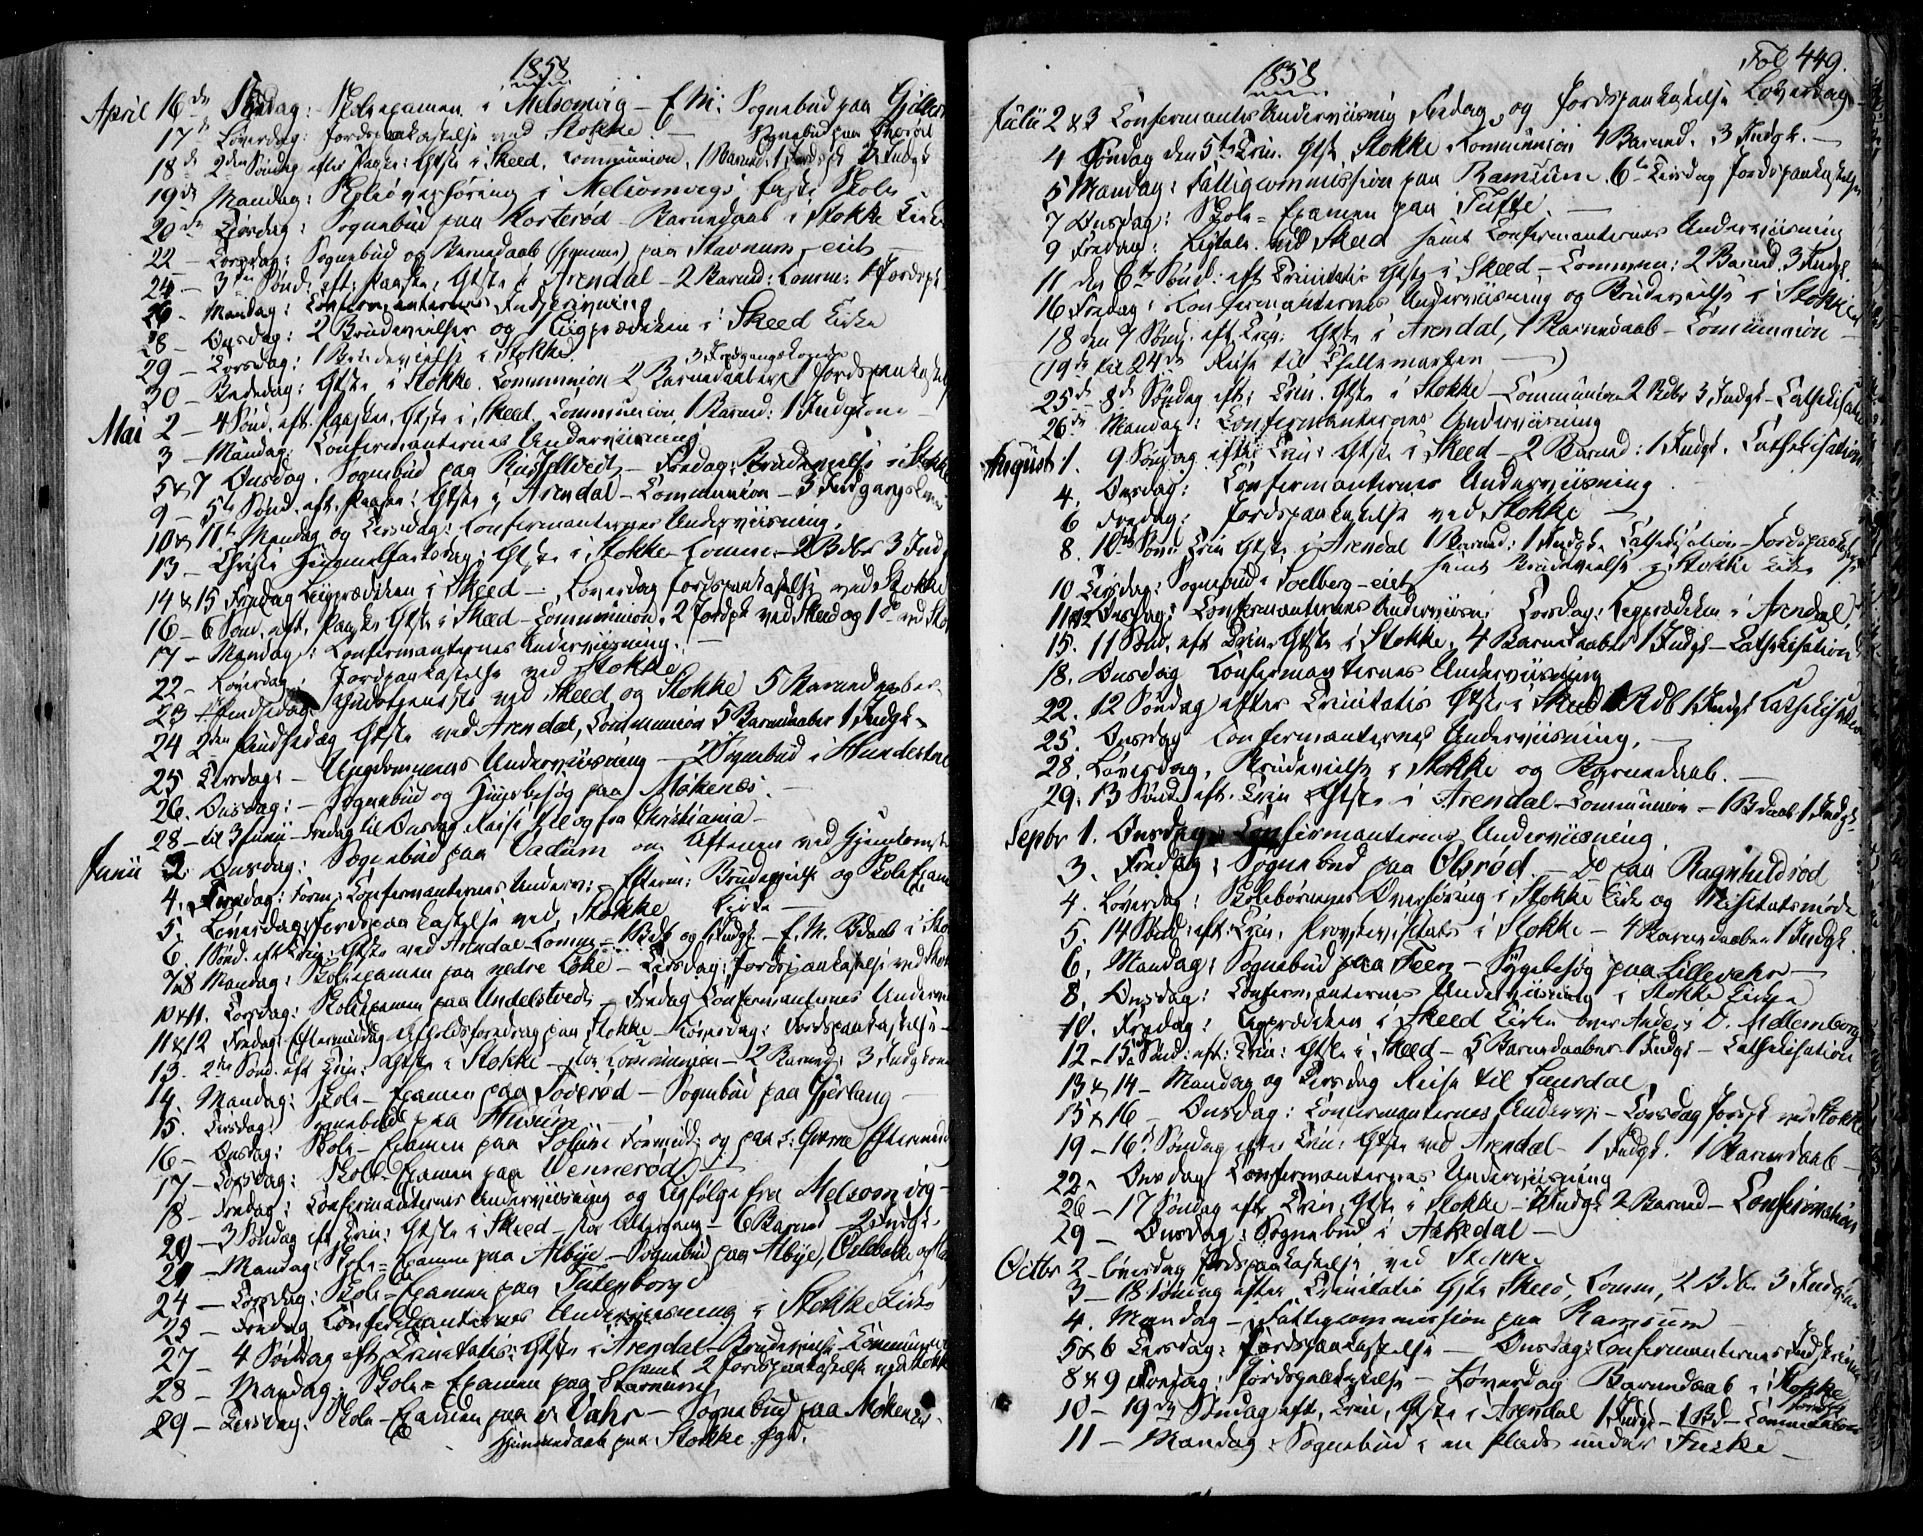 1858
April 16de Fredag: Skoleexamen i Melsomvig – E.M. Sognebud paa
17de Løverdag: Jordspaakastelse ved Stokke – Sognebud paa
18de 2den Søndag efter Paaske: Gtste i Skeed, Communion, 1 Barned: 1 Jordspk 2 Indgk
19de Mandag: Skoleoverføring i Melsomvigs faste Skole
20de Tirsdag: Sognebud paa Korterød – Barnedaab i Stokke Kirke
22 – Torsdag: Sognebud og Barnedaab (hjemme) paa Stavnum-eiet
– 3die Sønd: eft: Paaske, Gtste i Arendal – 2 Barned: Comm: 1 Jordspk
26 – Mandag: Confirmanternes Indskrivning
28 – Onsdag: 2 Brudevielser og 1 Liigprædiken i Skeed Kirke
29 – Torsdag: 1 Brudevielse i Stokke
3 Indgangskoner
30 – Bededag: Gtste i Stokke. Communion 2 Barnedaaber 1 Jordspaakastelse
Mai 2 – 4 Sønd. eft. Paaske, Gtste i Skeed, Communion 1 Barned: 1 Indgkone
3 – Mandag: Confirmanternes Underviisning
5 & 7 Onsdag. Sognebud paa – Fredag: Brudevielse i Stokke
9 – 5te Sønd. eft. Paaske: Gtste i Arendal – Communion – 3 Indgangskoner
10 & 11te Mandag og Tirsdag: Confirmanternes Underviisning.
13 – Christi Himmelfartsdag: Gtste i Stokke – Comm – 2 Bdb 3 Indg
14 & 15 Fredag Liigprædiken i Skeed – Løverdag Jordspaakastelse ved Stokke
16 – 6 Sønd. eft. Paaske Gtste i Skeed – Communion. 2 Jordspk ved Skeed og 1 do ved Sto
17 – Mandag: Confirmanternes Underviisning. –
22 – Løverdag: Jordspaakastelse ved Stokke
23 Pindsedag: Gudstjeneste ved Skeed og Stokke 5 Barnedaaber
24 2den Pindsedag Gtste ved Arendal, Communion 5 Barnedaaber 1 Indgk.
25 Tirsdag: – Ungdommens Underviisning – 2 Sognebud i
26. Onsdag: – Sognebud og Huusbesøg paa Møkenæs. –
28 – til 3 Junii – Fredag til Onsdag Reise til og fra Christiania –
Junii 2 Onsdag: Sognebud paa Vadum om Aftenen ved Hjemkomsten
4. Fredag: Form: Confirmanternes Underv: – Efterm: Brudevielse og Skole Exam
5. Løverdag Jordspaakastelse ved Stokke Kirke
6. 1 Sønd. eft Trin. Gtste ved Arendal – Comm – 1 Bdb og 1 Indgk – E.M. Bdaab i Sto
7 & 8 Mandag: Skoleexamen paa nedre – Tirsdag: Jordspaakastelse ved Stok
10 & 11. Torsdag: Skoleexamen paa Undelstvedt – Fredag Confirmanternes Underv
11 & 12 Fredag Eftermiddag Afholdsforedrag paa Stokke – Løverdag: Jordspaakastelse –
13. 2den Sønd. eft Trin: Gtste i Stokke – Communion – 2 Barned: 3 Indgkone
14. Mandag: Skole-Examen paa Soderød – Sognebud paa Gjerlang –
15. Tirsdag: Sognebud paa Husum –
16 – Onsdag: Skole-Examen paa Formid: og paa Eftermid
17 – Torsdag: Skole-Examen paa Vennerød
18 – Fredag: Confirmanternes Underviisning og Ligfølge fra Melsomvig –
20 – 3 Søndag eft Trin: Gtste i Skeed – – 6 Barned – 2 Indgk.
21 – Mandag: Skole-Examen paa Albye – Sognebud paa Albye,
24 – Torsdag: Skole-Examen paa Futenborge
25 – Fredag Confirmanternes Underviisning i Stokke Kirke
27 – 4 Søndag eft Trinitatis: Gtste i Arendal – Brudevielse – Communion
samt 2 Jordspaakastelse ved Stokke
28 – Mandag: Skole-Examen paa Stavnum
29 – Tirsdag: Skole-Examen paa Vahr – Sognebud paa Møkenæs.
Hjemmedaab paa Stokke Pgd.
1858
Fol 449.
Julii 2 & 3 Confirmantes Underviisning Fredag, og Jordspaakastelse Løverdag –
4 Søndag den 5te Trin. Gtste Stokke Communion 4 Barned. 3 Indgk. –
5 Mandag: Fattigcommission paa Ramsum. 6te Tirsdag Jordspaakastelse
7 Onsdag: Skole-Examen paa Tufte. –
9 Fredag: Ligtale ved Skeed samt Confirmanternes Underviisning
11 den 6te Sønd. eft Trinitatis Gtste i Skeed – Commun: 2 Barned. 3 Indgk.
16 Fredag: Confirmanternes Underviisning og Brudevielse i Stokke
18 den 7 Sønd. eft Trin: Gtste i Arendal, 1 Barnedaab – Communion –
(19de til 24de Reise til Thellemarken –)
25de 8de Søndag eft: Trin. Gtste i Stokke – Communion 2 Bdb 3 Indgk – Cathekisation
26de Mandag: Confirmanternes Underviisning
August 1. 9 Søndag efter Trin: Gtste i Skeed – 2 Barned: 1 Indgk. Cathekisation
4. Onsdag: Confirmanternes Underviisning
6 Fredag: Jordspaakastelse ved Stokke
8. 10de Sønd Trin Gtste i Arendal 1 Barned: 1 Indgk. Cathekisation – Jordspaakastelse
samt Brudevielse i Stokke Kirke
10 Tirsdag: Sognebud i Soelberg-eiet
11 & 12 Onsdag: Confirmanternes Underviisn: Torsdag: Ligprædiken i Arendal
15. 11 Sønd. eft Trin. Gtste i Stokke. 4 Barnedaaber 1 Indgk – Cathekisation
18. Onsdag Confirmanternes Underviisning
22. 12 Søndag efter Trinitatis Gtste i Skeed 1 Bdb 1 Indgk Cathekisation
25. Onsdag Confirmanternes Underviisning. –
28. Løverdag, Brudevielse i Stokke og Barnedaab. –
29. 13 Sønd. eft. Trin Gtste i Arendal – Communion – 1 Bdaab 1 Indgk.
Septbr 1. Onsdag: Confirmanternes Underviisning
3. Fredag: Sognebud paa Olsrød. – Do paa Ragnhildrød
4. Løverdag: Skolebørnenes Overhøring i Stokke Kirke og Visitatsmøde
5. 14 Sønd. eft Trin. Provstevisitats i Stokke – 4 Barnedaaber 1 Indgk.
6. Mandag: Sognebud paa Feen – Sygebesøg paa Lillevahr –
8. Onsdag: Confirmanternes Underviisning i Stokke Kirke
10. Fredag: Ligprædiken i Skeed Kirke over Anders O. Mellemborge
12 – 15de Sønd: eft: Trin: Gtste i Skeed – 5 Barnedaaber 1 Indgk – Cathekisation
13 & 14 – Mandag og Tirsdag Reise til Laurdal
15 & 16 – Onsdag: Confirmanternes Underv: – Torsdag Jordspk ved Stokke
19 – 16de Søndag efter Trin: Gtste ved Arendal – 1 Indgk. 1 Barnedaab –
22 – Onsdag Confirmanternes Underviisning
26 – 17 Søndag efter Trin: Gtste i Stokke – Indgk 2 Barned – Confirmation
29 – Onsdag: Sognebud i Askedal –
Octbr 2 – Løverdag Jordspaakastelse ved Stokke
3 – 18 Søndag efter Trinitatis Gtste Skeed, Comm, 2 Bdb. 3 Indgkon
4. Mandag – Fattigcommission paa Ramsum –
5 & 6 Tirsdag: Jordspaakastelse – Onsdag: Confirmanternes Indskrivn
8 & 9 Fredag: Jordspaakastelse – Løverdag Barnedaab i Stokke
10 – 19de Søndag eft. Trin. Gtste i Arendal 1 Indgk – 1 Bd – Communion
11 – Mandag: Sognebud i en Plads under Fuske –